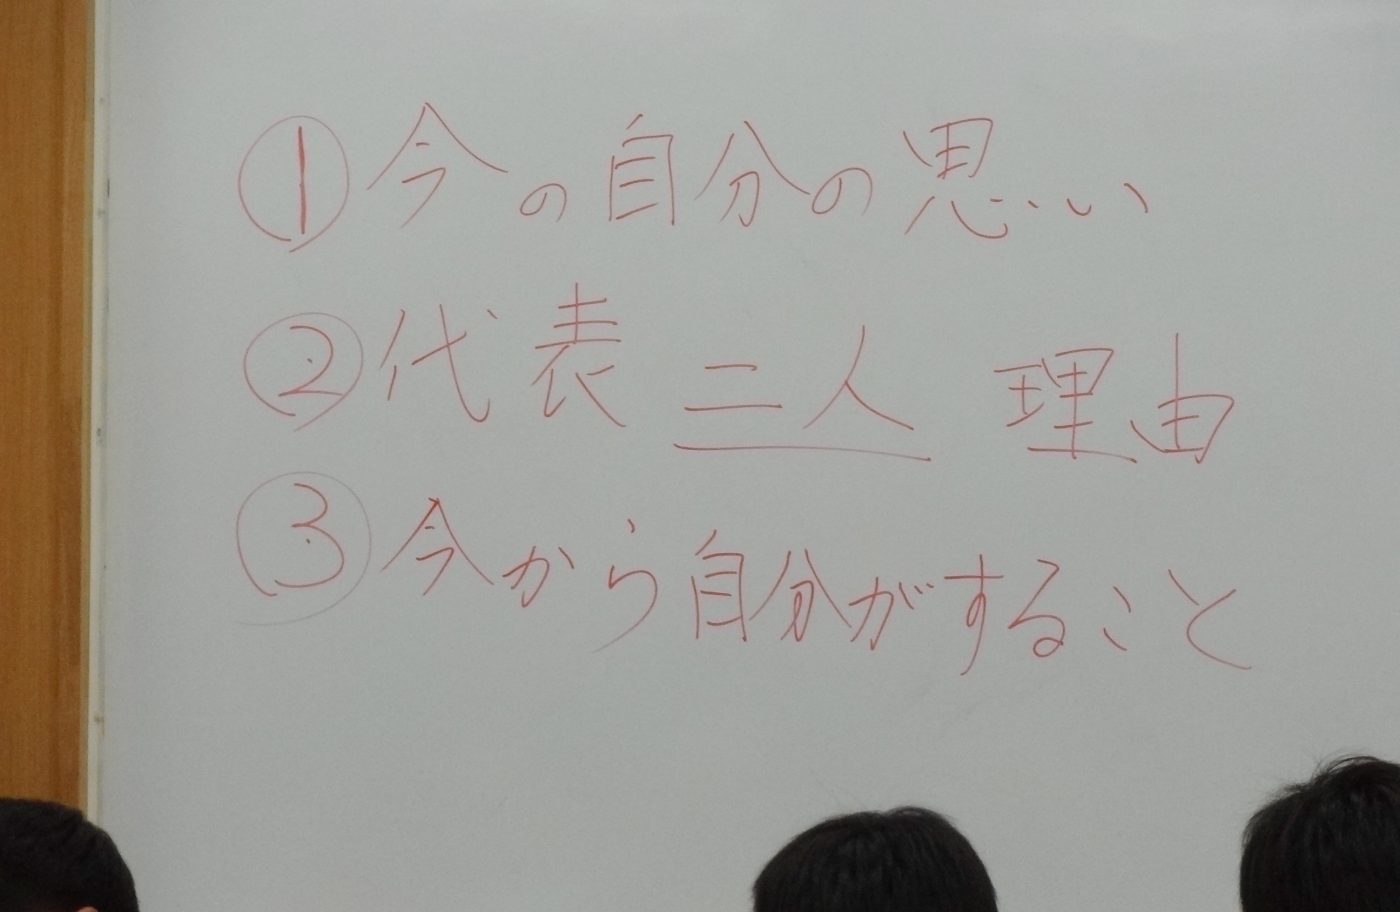 ①今の自分の思い
②代表 二人 理由
③今から自分がすること